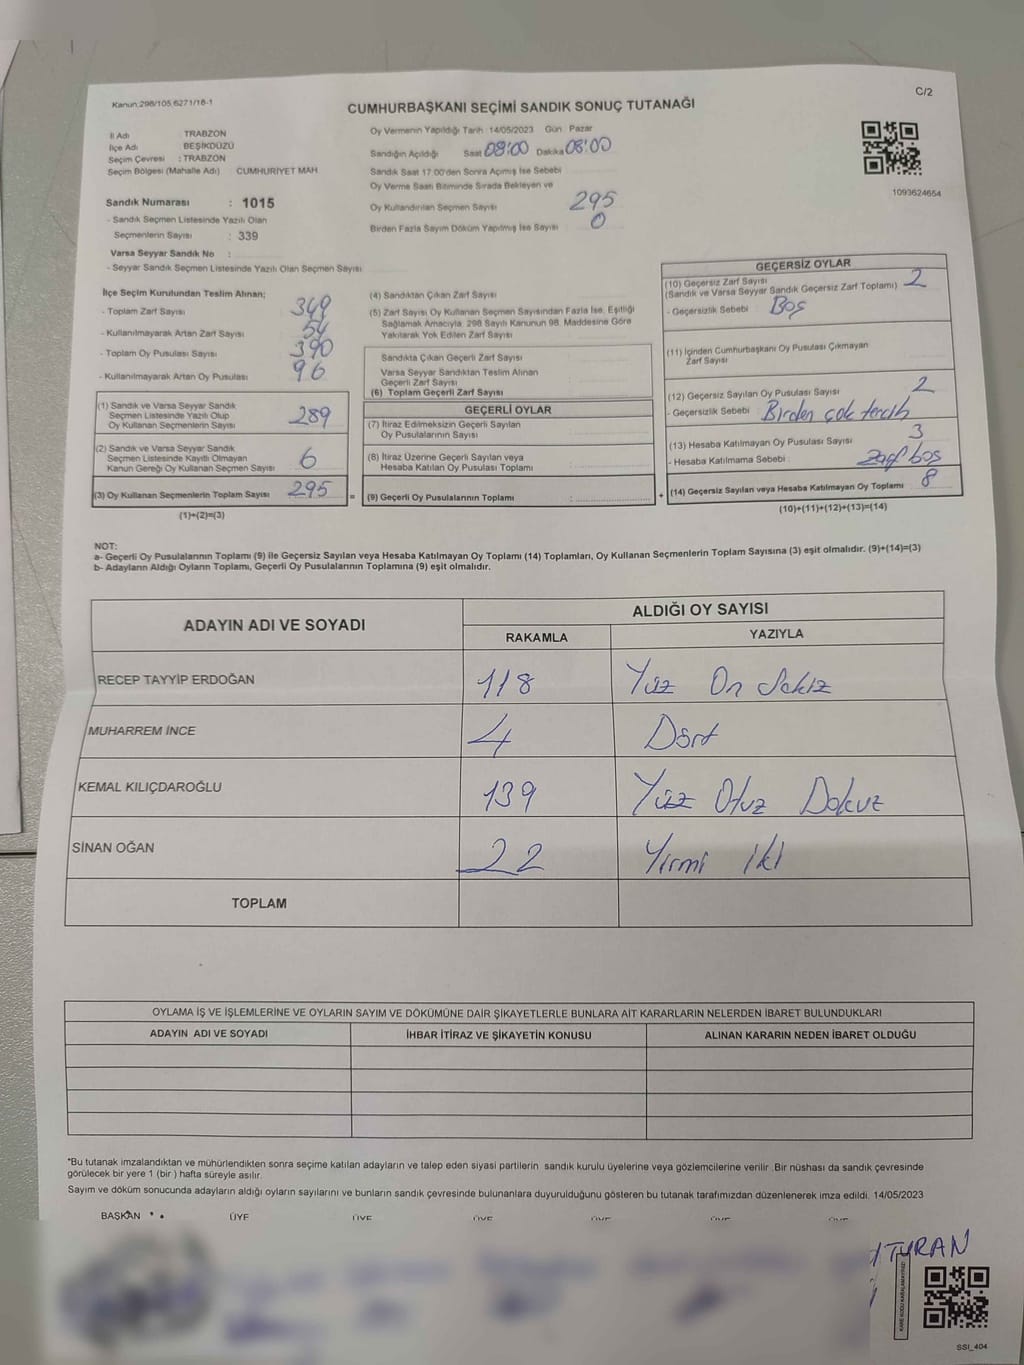 Kanun:298/105,6271/18-1
C/2
CUMHURBAŞKANI SEÇİMİ SANDIK SONUÇ TUTANAĞI
İl Adı TRABZON
İlçe Adı BEŞİKDÜZÜ
Seçim Çevresi : TRABZON
Seçim Bölgesi (Mahalle Adı) CUMHURIYET MAH
Sandık Numarası : 1015
- Sandık Seçmen Listesinde Yazılı Olan
Seçmenlerin Sayısı : 339
Varsa Seyyar Sandık No :
- Seyyar Sandık Seçmen Listesinde Yazılı Olan Seçmen Sayısı
Oy Vermenin Yapıldığı Tarih :14/05/2023 Gün Pazar
Sandığın Açıldığı Saat 08:00 Dakika 08:00
Sandık Saat 17 00'den Sonra Açımış İse Sebebi
Oy Verme Saati Bitiminde Sırada Bekleyen ve
Oy Kullandırılan Seçmen Sayısı 295
Birden Fazla Sayım Döküm Yapılmış İse Sayısı 0
1093624654
İlçe Seçim Kurulundan Teslim Alınan;
- Toplam Zarf Sayısı 349
- Kullanılmayarak Artan Zarf Sayısı 54
- Toplam Oy Pusulası Sayısı 390
- Kullanılmayarak Artan Oy Pusulası 96
(1) Sandık ve Varsa Seyyar Sandık
Seçmen Listesinde Yazılı Olup
Oy Kullanan Seçmenlerin Sayısı 289
(2) Sandık ve Varsa Seyyar Sandık
Seçmen Listesinde Kayıtlı Olmayan
Kanun Gereği Oy Kullanan Seçmen Sayısı 6
(3) Oy Kullanan Seçmenlerin Toplam Sayısı 295 =
(1)+(2)=(3)
(4) Sandıktan Çıkan Zarf Sayısı
(5) Zarf Sayısı Oy Kullanan Seçmen Sayısından Fazla İse, Eşitliği
Sağlamak Amacıyla, 298 Sayılı Kanunun 98. Maddesine Göre
Yakılarak Yok Edilen Zarf Sayısı
Sandıkta Çıkan Geçerli Zarf Sayısı
Varsa Seyyar Sandıktan Teslim Alınan
Geçerli Zarf Sayısı
(6) Toplam Geçerli Zarf Sayısı
GEÇERLİ OYLAR
(7) İtiraz Edilmeksizin Geçerli Sayılan
Oy Pusulalarının Sayısı
(8) İtiraz Üzerine Geçerli Sayılan veya
Hesaba Katılan Oy Pusulası Toplamı
(9) Geçerli Oy Pusulalarının Toplamı : +
GEÇERSİZ OYLAR
(10) Geçersiz Zarf Sayısı
(Sandık ve Varsa Seyyar Sandık Geçersiz Zarf Toplamı) 2
- Geçersizlik Sebebi Boş
(11) İçinden Cumhurbaşkanı Oy Pusulası Çıkmayan
Zarf Sayısı
(12) Geçersiz Sayılan Oy Pusulası Sayısı 2
- Geçersizlik Sebebi Birden çok tercih
(13) Hesaba Katılmayan Oy Pusulası Sayısı 3
- Hesaba Katılmama Sebebi : Zarf boş
(14) Geçersiz Sayılan veya Hesaba Katılmayan Oy Toplamı 8
(10)+(11)+(12)+(13)=(14)
NOT:
a- Geçerli Oy Pusulalarının Toplamı (9) ile Geçersiz Sayılan veya Hesaba Katılmayan Oy Toplamı (14) Toplamları, Oy Kullanan Seçmenlerin Toplam Sayısına (3) eşit olmalıdır. (9)+(14)=(3)
b- Adayların Aldığı Oyların Toplamı, Geçerli Oy Pusulalarının Toplamına (9) eşit olmalıdır.
ADAYIN ADI VE SOYADI ALDIĞI OY SAYISI
RAKAMLA YAZIYLA
RECEP TAYYİP ERDOĞAN 118 Yüz On Sekiz
MUHARREM İNCE 4 Dört
KEMAL KILIÇDAROĞLU 139 Yüz Otuz Dokuz
SİNAN OĞAN 22 Yirmi iki
TOPLAM
OYLAMA İŞ VE İŞLEMLERİNE VE OYLARIN SAYIM VE DÖKÜMÜNE DAİR ŞİKAYETLERLE BUNLARA AİT KARARLARIN NELERDEN İBARET BULUNDUKLARI
ADAYIN ADI VE SOYADI İHBAR İTİRAZ VE ŞİKAYETİN KONUSU ALINAN KARARIN NEDEN İBARET OLDUĞU
*Bu tutanak imzalandıktan ve mühürlendikten sonra seçime katılan adayların ve talep eden siyasi partilerin sandık kurulu üyelerine veya gözlemcilerine verilir. Bir nüshası da sandık çevresinde
görülecek bir yere 1 (bir) hafta süreyle asılır.
Sayım ve döküm sonucunda adayların aldığı oyların sayılarını ve bunların sandık çevresinde bulunanlara duyurulduğunu gösteren bu tutanak tarafımızdan düzenlenerek imza edildi. 14/05/2023
BAŞKAN ÜYE ÜYE ÜYE ÜYE ÜYE ÜYE
TURAN
KARE KODU KARALAMAYINIZ!
SSI_404